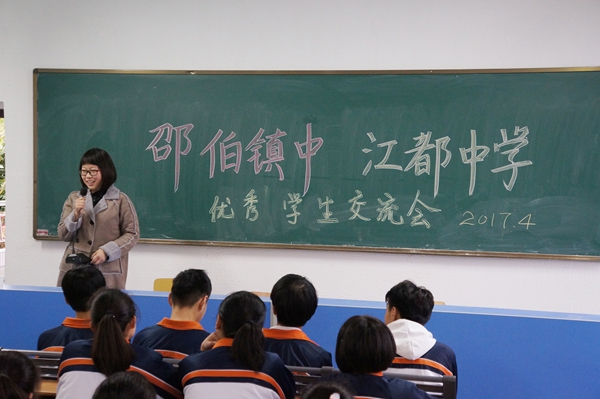 邵伯镇中 江都中学
优秀学生交流会 2017.4